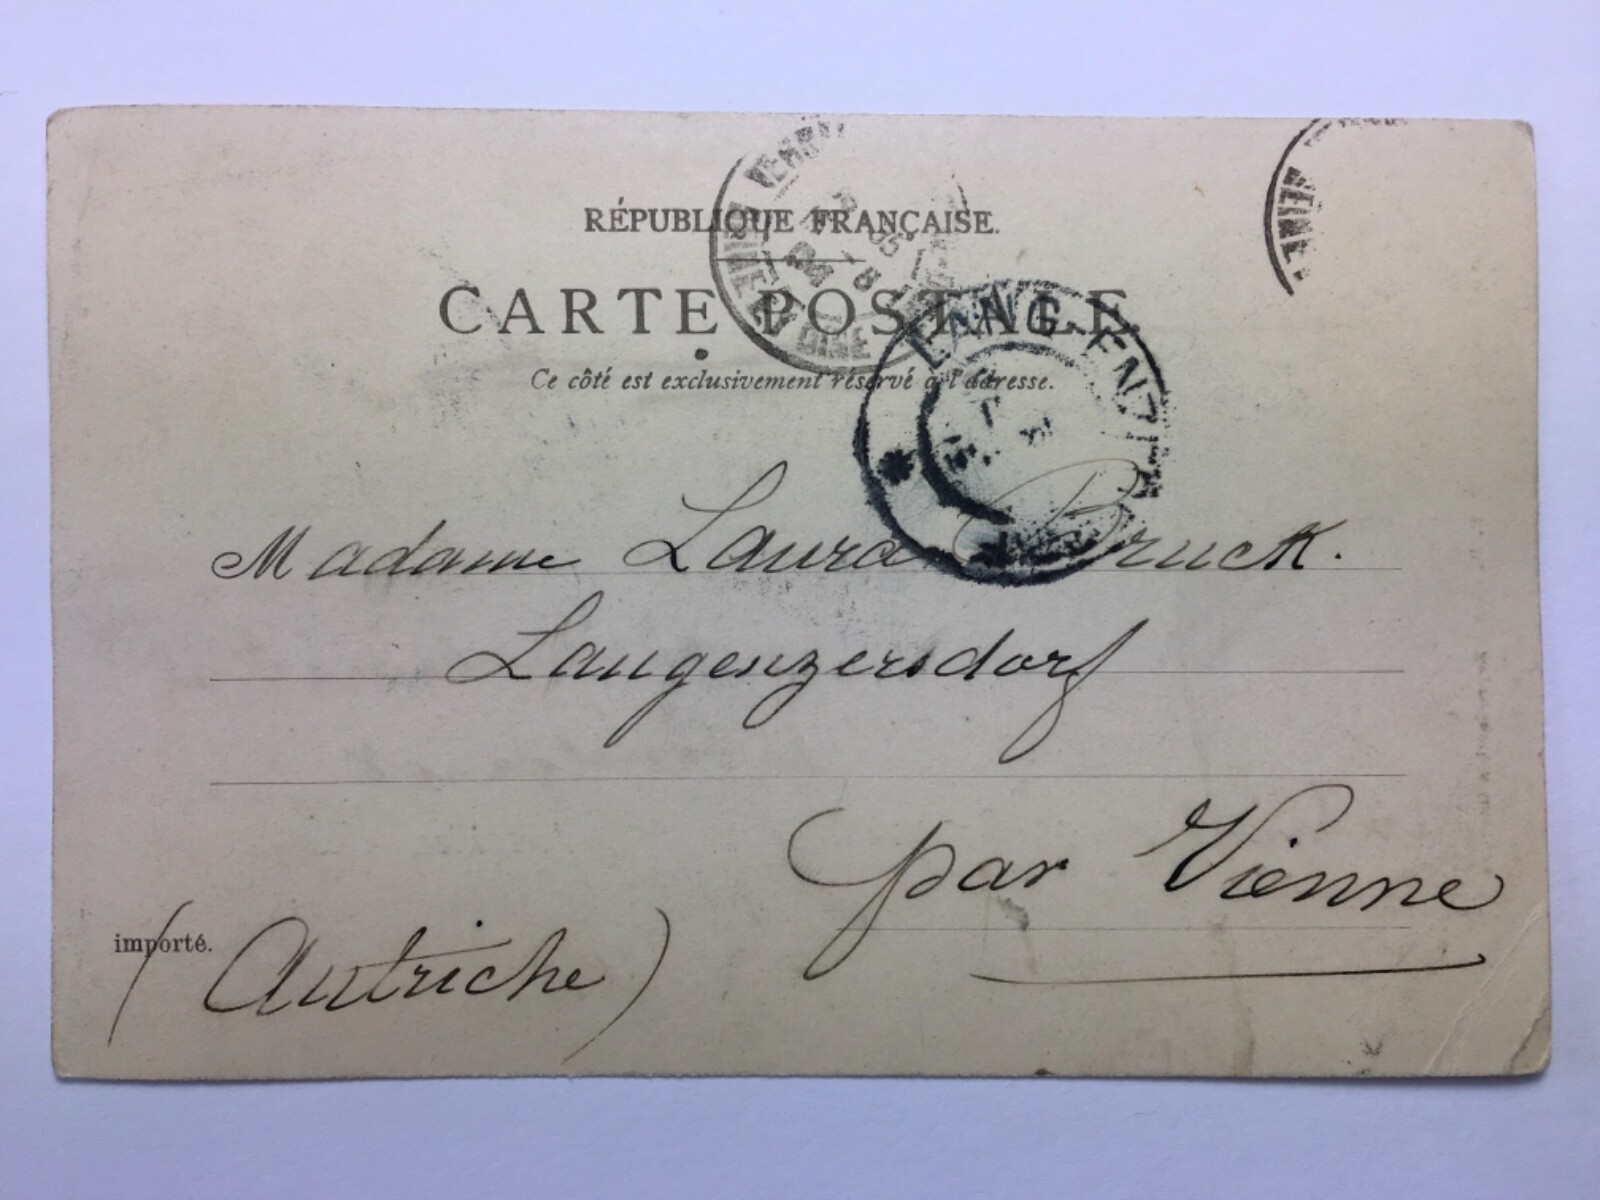 RÉPUBLIQUE FRANÇAISE.
CARTE POSTALE.
Ce côté est exclusivement réservé à l'adresse.
LANG-ENZER
Madame Laura Bruck.
Langenzersdorf
par Vienne
importé.
(Autriche)